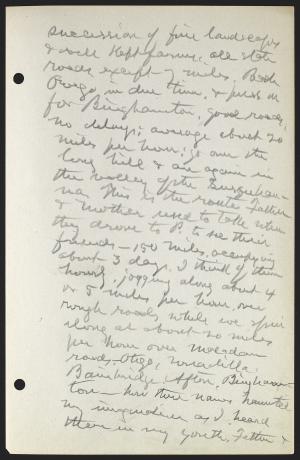 succession of fine landscapes
& well kept farms; all state
roads except 7 miles. Reach
Otego in due time, & press on
for Binghamton, good roads,
no delays; average about 20
miles per hour; go over the
long hill & are again in
the valley of the Susquehan-
na. This is the route Father
& Mother used to take when
they drove to P. to see their
friends – 150 miles, occupying
about 3 days. I think of them
hourly, jogging along about 4
or 5 miles per hour, over
rough roads while we spin
along at about 20 miles
per hour over macadam
roads. Otego, Unadilla,
Bainbridge, Afton, Bingham-
ton – how these names haunted
my imagination as I heard
them in my youth. Father &